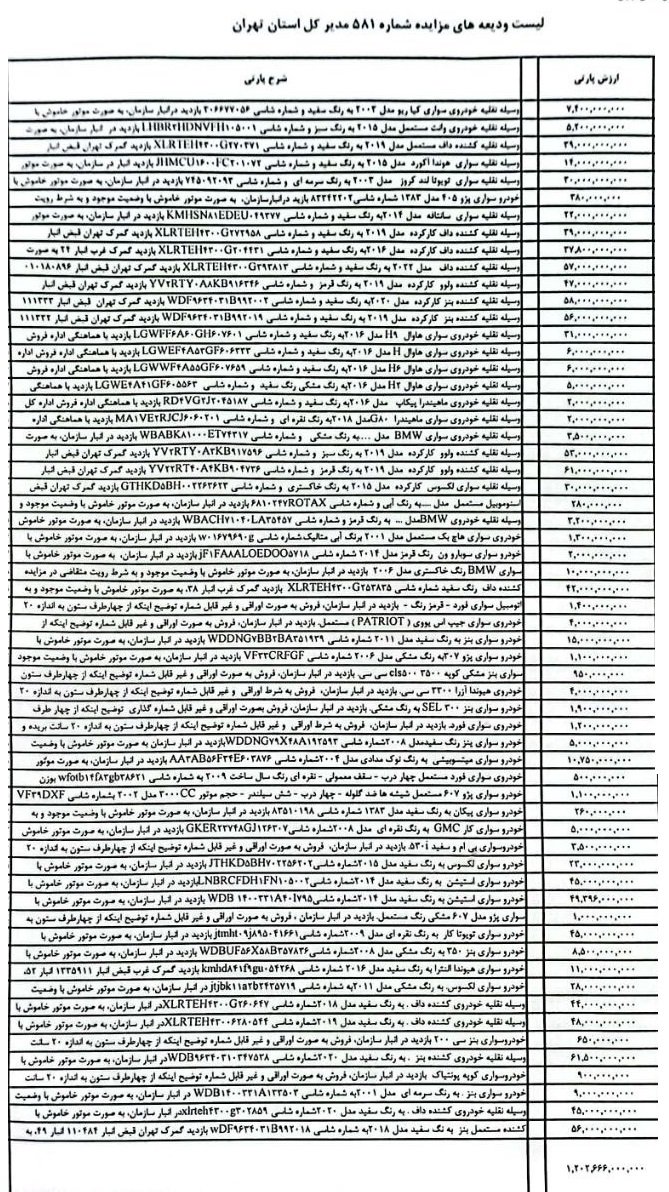 لیست ودیعه های مزایده شماره ۵۸۱ مدیر کل استان تهران
ارزش پارتی شرح پارتی
۷,۴۰۰,۰۰۰,۰۰۰ وسیله نقلیه خودروی سواری کیا ریو مدل ۲۰۰۲ به رنگ سفید و شماره شاسی ۳۰۶۶۷۷۰۵۶ بازدید درانبار سازمان، به صورت موتور خاموش با
۵,۲۰۰,۰۰۰,۰۰۰ وسیله نقلیه خودروی وانت مستعمل مدل ۲۰۱۵ به رنگ سبز و شماره شاسی LHBR۲HDNVFH۱۰۵۰۰۱ بازدید در انبار سازمان، به صورت
۳۹,۰۰۰,۰۰۰,۰۰۰ وسیله نقلیه کشنده داف مستعمل مدل ۲۰۱۹ به رنگ سفید و شماره شاسی XLRTEH۴۳۰۰G۲۷۰۲۷۱ بازدید گمرک تهران قبض انبار
۱۴,۰۰۰,۰۰۰,۰۰۰ وسیله نقلیه سواری هوندا آکورد مدل ۲۰۱۵ به رنگ سفید و شماره شاسی JHMCU۱۶۰۰FC۲۰۱۰۷۲ بازدید در انبار سازمان، به صورت موتور
۳۰,۰۰۰,۰۰۰,۰۰۰ وسیله نقلیه سواری تویوتا لند کروز مدل ۲۰۰۳ به رنگ سرمه ای و شماره شاسی ۷۴۵۰۹۲۰۹۳ بازدید در انبار سازمان، به صورت موتور خاموش با
۳۸۰,۰۰۰,۰۰۰ خودرو سواری پژو ۴۰۵ مدل ۱۳۸۳ شماره شاسی۸۳۳۴۲۲۰۲ بازید درانبارسازمان، به صورت موتور خاموش با وضعیت موجود و به شرط رویت
۲۲,۰۰۰,۰۰۰,۰۰۰ وسیله نقلیه سواری سانتافه مدل ۲۰۱۴به رنگ سفید و شماره شاسی KMHSN۸۱EDEU۰۴۹۲۷۷ بازدید در انبار سازمان، به صورت موتور
۳۹,۰۰۰,۰۰۰,۰۰۰ وسیله نقلیه کشنده داف کارکرده مدل ۲۰۱۹ به رنگ سفید و شماره شاسی XLRTEH۴۳۰۰G۲۷۲۹۵۸ بازدید گمرک تهران قبض انبار
۳۷,۸۰۰,۰۰۰,۰۰۰ وسیله نقلیه کشنده داف کارکرده مدل ۲۰۱۶به رنگ سفید و شماره شاسی XLRTEH۴۳۰۰G۲۰۴۴۳۱ بازدید گمرک غرب انبار ۲۴ به صورت
۵۷,۰۰۰,۰۰۰,۰۰۰ وسیله نقلیه کشنده داف مدل ۲۰۲۲ به رنگ سفید و شماره شاسی XLRTEH۴۳۰۰G۳۹۳۸۱۳ بازدید گمرک تهران قبض انبار ۰۱۰۱۸۰۸۹۶
۴۷,۰۰۰,۰۰۰,۰۰۰ وسیله نقلیه کشنده ولوو کارکرده مدل ۲۰۱۹ به رنگ قرمز و شماره شاسی YV۲RTY۰A۸KB۹۱۶۳۴۶ بازدید گمرک تهران قبض انبار
۵۸,۰۰۰,۰۰۰,۰۰۰ وسیله نقلیه کشنده بنز کارکرده مدل ۲۰۲۰به رنگ سفید و شماره شاسی WDF۹۶۳۴۰۳۱B۹۹۲۰۰۲ بازدید گمرک تهران قبض انبار ۱۱۱۳۳۳
۵۶,۰۰۰,۰۰۰,۰۰۰ وسیله نقلیه کشنده بنز کارکرده مدل ۲۰۱۹ به رنگ سفید و شماره شاسی WDF۹۶۳۴۰۳۱B۹۹۲۰۱۹ بازدید گمرک تهران قبض انبار ۱۱۱۳۳۲
۳۱,۰۰۰,۰۰۰,۰۰۰ وسیله نقلیه خودروی سواری هاوال H۹ مدل ۲۰۱۶به رنگ سفید و شماره شاسی LGWFF۶A۶۰GH۶۰۷۶۰۱ بازدید با هماهنگی اداره فروش
۶,۰۰۰,۰۰۰,۰۰۰ وسیله نقلیه خودروی سواری هاوال H مدل ۲۰۱۶به رنگ سفید و شماره شاسی LGWEF۴A۵۲GF۶۰۶۲۳۳ بازدید با هماهنگی اداره فروش اداره
۶,۰۰۰,۰۰۰,۰۰۰ وسیله نقلیه خودروی سواری هاوال H۶ مدل ۲۰۱۶به رنگ سفید و شماره شاسی LGWWF۴A۵۵GF۶۰۷۶۵۹ بازدید با هماهنگی اداره فروش
۵,۰۰۰,۰۰۰,۰۰۰ وسیله نقلیه خودروی سواری هاوال H۲ مدل ۲۰۱۶به رنگ مشکی رنگ سفید و شماره شاسی LGWE۴A۴۱GF۶۰۵۵۶۳ بازدید با هماهنگی
۲,۰۰۰,۰۰۰,۰۰۰ وسیله نقلیه خودروی ماهیندرا پیکاپ مدل ۲۰۱۶به رنگ سفید و شماره شاسی RD۴VG۲J۲۰۴۵۱۸۷ بازدید با هماهنگی اداره فروش اداره کل
۲,۰۰۰,۰۰۰,۰۰۰ وسیله نقلیه خودروی سواری ماهیندرا G۸۰مدل ۲۰۱۸به رنگ نقره ای و شماره شاسی MA۱VE۲RJCJ۶۰۶۰۲۰۱ بازدید با هماهنگی اداره
۳,۵۰۰,۰۰۰,۰۰۰ وسیله نقلیه خودروی سواری BMW مدل ....به رنگ مشکی و شماره شاسی WBABK۸۱۰۰۰ET۷۴۳۱۷ بازدید در انبار سازمان، به صورت
۵۳,۰۰۰,۰۰۰,۰۰۰ وسیله نقلیه کشنده ولوو کارکرده مدل ۲۰۱۹ به رنگ سبز و شماره شاسی YV۲RTY۰A۲KB۹۱۷۵۹۶ بازدید گمرک تهران قبض انبار
۶۱,۰۰۰,۰۰۰,۰۰۰ وسیله نقلیه کشنده ولوو کارکرده مدل ۲۰۱۹ به رنگ قرمز و شماره شاسی YV۲RT۴۰A۴KB۹۰۴۷۳۶ بازدید گمرک تهران قبض انبار
۳۰,۰۰۰,۰۰۰,۰۰۰ وسیله نقلیه سواری لکسوس کارکرده مدل ۲۰۱۵ به رنگ خاکستری و شماره شاسی GTHKD۵BH۰۰۲۲۶۲۶۲۳ بازدید گمرک تهران قبض
۲۸۰,۰۰۰,۰۰۰ اسنوموبیل مستعمل مدل ....به رنگ آبی و شماره شاسی ۶۸۱۰۲۴۷ROTAX بازدید در انبار سازمان، به صورت موتور خاموش با وضعیت موجود و
۳,۲۰۰,۰۰۰,۰۰۰ وسیله نقلیه خودروی BMWمدل ... به رنگ قرمز و شماره شاسی WBACH۷۱۰۴۰LA۳۵۴۵۷ بازدید در انبار سازمان، به صورت موتور خاموش
۱,۳۰۰,۰۰۰,۰۰۰ خودروی سواری هاچ بک مستعمل مدل ۲۰۰۱ برنگ آبی متالیک،شماره شاسی W۰۱۶۷۹۶۹۰g بازدید در انبار سازمان، به صورت موتور خاموش
۲,۰۰۰,۰۰۰,۰۰۰ خودروی سواری سوبارو ون رنگ قرمز مدل ۲۰۱۴ شماره شاسی jF۱FAAALOEDOO۵۷۱۸ بازدید در انبار سازمان، به صورت موتور خاموش با
۱۰,۰۰۰,۰۰۰,۰۰۰ سواری BMW رنگ خاکستری مدل ۲۰۰۶ بازدید در انبار سازمان، به صورت موتور خاموش با وضعیت موجود و به شرط رویت متقاضی در مزایده
۴۲,۰۰۰,۰۰۰,۰۰۰ کشنده داف رنگ سفید شماره شاسی XLRTEH۴۳۰۰G۲۵۳۸۳۵ بازدید گمرک غرب انبار ۳۸، به صورت موتور خاموش با وضعیت موجود و به
۱,۴۰۰,۰۰۰,۰۰۰ اتومبیل سواری فورد - قرمز رنگ - بازدید در انبار سازمان، فروش به صورت اوراقی و غیر قابل شماره توضیح اینکه از چهارطرف ستون به اندازه ۲۰
۴,۰۰۰,۰۰۰,۰۰۰ خودروی سواری جیپ اس یووی (PATRIOT) مستعمل، بازدید در انبار سازمان، فروش به صورت اوراقی و غیر قابل شماره توضیح اینکه از
۱۵,۰۰۰,۰۰۰,۰۰۰ خودرو سواری بنز به رنگ سفید مدل ۲۰۱۱ شماره شاسی WDDNG۷BB۲BA۳۵۱۹۳۹ بازدید در انبار سازمان، به صورت موتور خاموش با
۱,۱۰۰,۰۰۰,۰۰۰ خودرو سواری پژو ۳۰۷به رنگ مشکی مدل ۲۰۰۶ شماره شاسی VF۳۳CRFGF بازدید در انبار سازمان، به صورت موتور خاموش با وضعیت موجود
۹۵۰,۰۰۰,۰۰۰ سواری بنز مشکی کوپه cls۵۰۰ ۳۵۰۰ سی سی، بازدید در انبار سازمان، فروش به صورت اوراقی و غیر قابل شماره توضیح اینکه از چهارطرف ستون
۴,۰۰۰,۰۰۰,۰۰۰ خودروی هیوندا آزرا ۳۳۰۰ سی سی، بازدید در انبار سازمان، فروش به شرط اوراقی و غیر قابل شماره توضیح اینکه از چهارطرف ستون به اندازه ۲۰
۱,۹۰۰,۰۰۰,۰۰۰ خودرو سواری بنز ۳۰۰ SEL به رنگ مشکی، بازدید در انبار سازمان، فروش بصورت اوراقی و غیر قابل شماره گذاری توضیح اینکه از چهار طرف
۱,۲۰۰,۰۰۰,۰۰۰ خودرو سواری فورد، بازدید در انبار سازمان، فروش به شرط اوراقی و غیر قابل شماره توضیح اینکه از چهارطرف ستون به اندازه ۲۰ سانت بریده و
۵,۰۰۰,۰۰۰,۰۰۰ خودرو سواری بنز رنگ سفیدمدل ۲۰۰۸شماره شاسی WDDNG۷۹X۴۸A۱۹۲۵۹۲ بازدید در انبار سازمان، به صورت موتور خاموش با وضعیت
۱۰,۷۵۰,۰۰۰,۰۰۰ خودرو سواری میتسوبیشی به رنگ نوک مدادی مدل ۲۰۰۴شماره شاسی AA۳AB۵۶F۲۴E۶۰۳۸۷۶ بازدید در انبار سازمان، به صورت موتور
۵۰۰,۰۰۰,۰۰۰ خودروی سواری فورد مستعمل چهار درب - سقف معمولی - نقره ای رنگ سال ساخت ۲۰۰۹ به شماره شاسی wf۰fb۱۴f۸۳gb۳۸۶۲۱ بوزن
۱,۱۰۰,۰۰۰,۰۰۰ خودرو سواری پژو ۶۰۷ مستعمل شیشه ها ضد گلوله - چهار درب - شش سیلندر - حجم موتور ۳۰۰۰CC مدل ۲۰۰۲ بشماره شاسی VF۳۹DXF
۲۶۰,۰۰۰,۰۰۰ خودرو سواری پیکان به رنگ سفید مدل ۱۳۸۳ شماره شاسی ۸۳۵۱۰۱۹۸ بازدید در انبار سازمان، به صورت موتور خاموش با وضعیت موجود و به
۵,۰۰۰,۰۰۰,۰۰۰ خودرو سواری کار GMC به رنگ نقره ای مدل ۲۰۰۸شماره شاسی GKER۲۳۷۴۸GJ۱۲۶۳۰۷ بازدید در انبار سازمان، به صورت موتور خاموش با
۳,۵۰۰,۰۰۰,۰۰۰ خودروسواری بی ام و سفید ۵۳۰i، بازدید در انبار سازمان، فروش به صورت اوراقی و غیر قابل شماره توضیح اینکه از چهارطرف ستون به اندازه ۲۰
۲۳,۰۰۰,۰۰۰,۰۰۰ خودرو سواری لکسوس به رنگ سفید مدل ۲۰۱۵شماره شاسی JTHKD۵BH۷۰۲۲۵۶۲۰۲ بازدید در انبار سازمان، به صورت موتور خاموش با
۴۵,۰۰۰,۰۰۰,۰۰۰ خودرو سواری استیشن به رنگ سفید مدل ۲۰۱۴شماره شاسی LNBRCFDH۱FN۱۰۵۰۰۲بازدید در انبار سازمان، به صورت موتور خاموش با
۴۹,۳۹۶,۰۰۰,۰۰۰ خودرو سواری استیشن به رنگ سفید مدل ۲۰۱۴شماره شاسی WDB ۱۴۰۰۳۲۱A۴۰۱۷۹۵ بازدید در انبار سازمان، به صورت موتور خاموش با
۱,۰۰۰,۰۰۰,۰۰۰ سواری پژو مدل ۶۰۷ مشکی رنگ مستعمل، بازدید در انبار سازمان ، فروش به صورت اوراقی و غیر قابل شماره توضیح اینکه از چهارطرف ستون به
۴۵,۰۰۰,۰۰۰,۰۰۰ خودرو سواری تویوتا کار به رنگ نقره ای مدل ۲۰۰۹شماره شاسی jtmht۰۹j۸۹۵۰۴۱۶۶۱ بازدید در انبار سازمان، به صورت موتور خاموش با
۸,۵۰۰,۰۰۰,۰۰۰ خودرو سواری بنز ۳۵۰ به رنگ مشکی مدل ۲۰۰۸شماره شاسی WDBUF۵۶X۵۸B۳۵۷۸۳۶ بازدید در انبار سازمان، به صورت موتور خاموش با
۱۱,۰۰۰,۰۰۰,۰۰۰ خودرو سواری هیوندا النترا به رنگ سفید مدل ۲۰۱۶ شماره شاسی kmhd۸۴۱f۹gu۰۵۴۲۶۸ بازدید گمرک غرب قبض انبار ۱۳۳۵۹۱۱ انبار ۵۲،
۲۸,۰۰۰,۰۰۰,۰۰۰ خودرو سواری لکسوس، به رنگ مشکی مدل ۲۰۱۱به شماره شاسی jtjbk۱۱a۲b۲۴۳۵۷۱۹ بازدید در انبار سازمان، به صورت موتور خاموش با
۴۴,۰۰۰,۰۰۰,۰۰۰ وسیله نقلیه خودروی کشنده داف . به رنگ سفید مدل ۲۰۱۸شماره شاسی XLRTEH۴۳۰۰G۲۶۰۶۴۷در انبار سازمان، به صورت موتور خاموش با
۴۸,۰۰۰,۰۰۰,۰۰۰ وسیله نقلیه خودروی کشنده داف . به رنگ سفید مدل ۲۰۱۹شماره شاسی XLRTEH۴۳۰۰۶۲۸۰۵۴۴در انبار سازمان، به صورت موتور خاموش با
۶۵۰,۰۰۰,۰۰۰ خودروسواری بنز سی ۲۰۰ بازدید در انبار سازمان، فروش به صورت اوراقی و غیر قابل شماره توضیح اینکه از چهارطرف ستون به اندازه ۲۰ سانت
۶۱,۵۰۰,۰۰۰,۰۰۰ وسیله نقلیه خودروی کشنده بنز . به رنگ سفید مدل ۲۰۲۰شماره شاسی WDB۹۶۳۴۰۳۱۰۳۴۷۵۳۸ در انبار سازمان، به صورت موتور خاموش با
۹۰۰,۰۰۰,۰۰۰ خودروسواری کوپه پونتیاک بازدید در انبار سازمان، فروش به صورت اوراقی و غیر قابل شماره توضیح اینکه از چهارطرف ستون به اندازه ۲۰ سانت
۹,۰۰۰,۰۰۰,۰۰۰ خودرو سواری بنز . به رنگ سرمه ای مدل ۲۰۰۱به شماره شاسی WDB۱۴۰۰۳۲۱A۱۳۳۵۰۲ در انبار سازمان، به صورت موتور خاموش با وضعیت
۴۵,۰۰۰,۰۰۰,۰۰۰ وسیله نقلیه خودروی کشنده داف . به رنگ سفید مدل ۲۰۲۰شماره شاسی xlrteh۴۳۰۰g۳۰۲۸۵۹در انبار سازمان، به صورت موتور خاموش با
۵۶,۰۰۰,۰۰۰,۰۰۰ کشنده مستعمل بنز به نگ سفید مدل ۲۰۱۸به شماره شاسی wDF۹۶۳۴۰۳۱B۹۹۲۰۱۸ بازدید گمرک تهران قبض انبار ۱۱۰۴۸۴ انبار ۴۹، به
۱,۲۰۲,۶۶۶,۰۰۰,۰۰۰